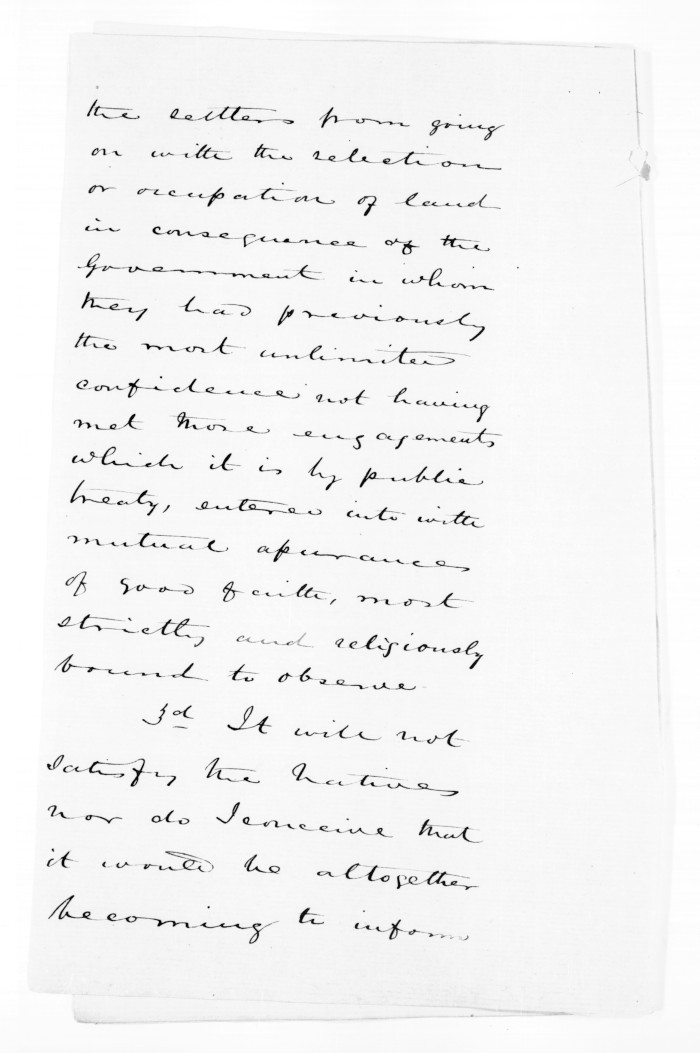 the settlers from going
on with the selection
or occupation of land
in consequence of the
Government in whom
they had previously
the most unlimited
confidence not having
met those engagements
which it is by public
treaty, entered into with
mutual assurances
of good faith, most
strictly and religiously
bound to observe
3d It will not
satisfy the Natives
nor do I conceive that
it would be altogether
becoming to inform